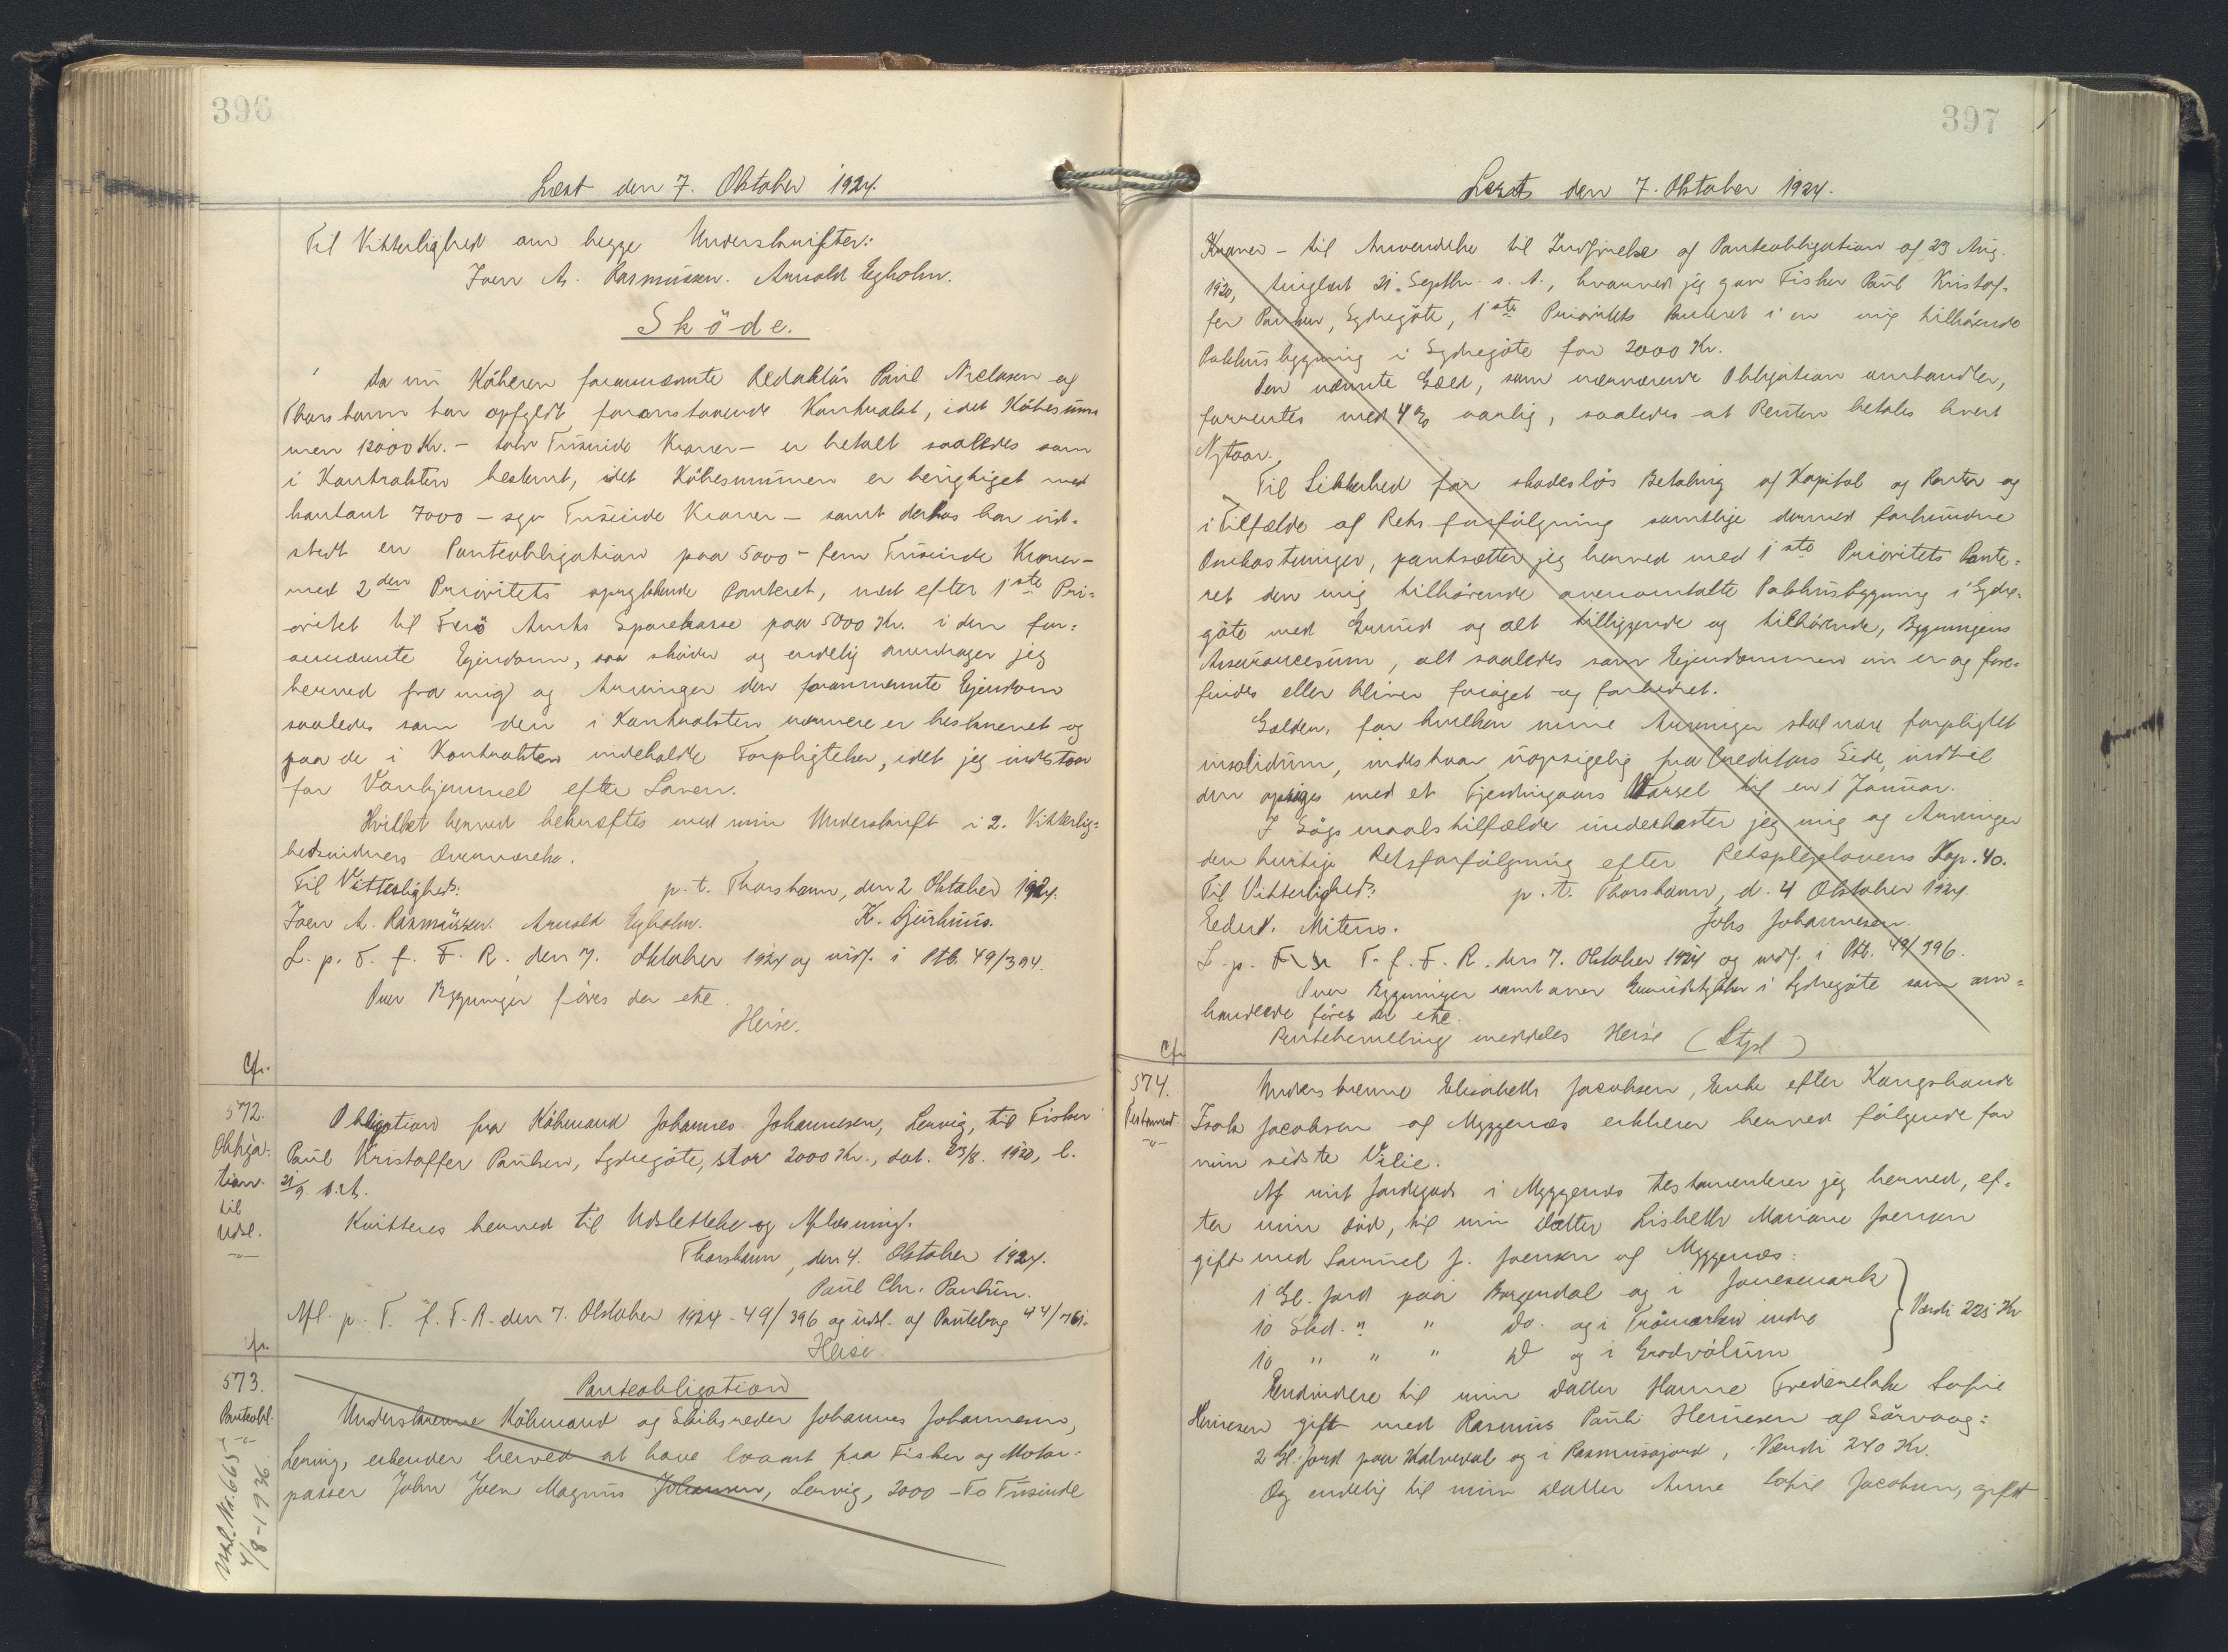 396
Læst den 7. Oktober 1924.
Til Vitterlighed om begge Underskrifter:
Joen A. Rasmussen. Arnold Egholm.
Sköde.
Da nu Köberen forannævnte Redaktör Poul Niclasen af
Thorshavn har opfyldt foranstaaende Kontrakt, idet Köbesum
men 12000 Kr. - tolv Tusinde Kroner - er betalt saaledes som
i Kontrakten bestemt, idet Köbesummen er berigtiget med
kontant 7000 - syv Tusinde Kroner - samt derhos har ud-
stedt en Panteobligation paa 5000 - fem Tusinde Kroner -
med 2den Prioritets oprykkende Panteret, næst efter 1ste Pri-
oritet til Færö Amts Sparekasse paa 5000 Kr. i den for-
annævnte Ejendom, saa sköder og endelig overdrager jeg
herved fra mig og Arvinger den forannævnte Ejendom
saaledes som den i Kontrakten nærmere er beskrevet og
paa de i Kontrakten indeholdte Forpligtelser, idet jeg indestaar
for Vanhjemmel efter Loven.
Hvilket herved bekræftes med min Underskrift i 2. Vitterlig-
hedsvidners Overværelse.
Til Vitterlighed: p. t. Thorshavn, den 2 Oktober 1924.
Joen A. Rasmussen. Arnold Egholm. K. Djurhuus.
L. p. T. f. F. R. den 7. Oktober 1924 og indf. i Ptb. 49/394.
Over Bygninger föres der ikke.
Heise.
Cfr.
572.
Obliga-
tion
til
Udsl.
Obligation fra Köbmand Johannes Johannesen, Lervig, til Fisker
Poul Kristoffer Poulsen, Sydregöte, stor 2000 Kr., dat. 23/8. 1920, l.
21/9. s. A.
Kvitteres herved til Udslettelse og Aflæsning.
Thorshavn, den 4. Oktober 1924.
Poul Chr. Poulsen.
Afl. p. T. f. F. R. den 7. Oktober 1924 - 49/396 og udsl. af Pantebog 44/761.
Heise
Cfr.
573.
Panteobl.
Udsl. Nr. 665
4/8-1936.
Panteobligation
Underskrevne Köbmand og Skibsreder Johannes Johannesen,
Lervig, erkender herved at have laant fra Fisker og Motor-
passer John Joen Magnus Johansen, Lervig, 2000 - To Tusinde
397
Læst den 7. Oktober 1924.
Kroner - til Anvendelse til Indfrielse af Panteobligation af 23 Aug.
1920, tinglæst 21. Septbr. s. A., hvorved jeg gav Fisker Poul Kristof-
fer Poulsen, Sydregöte, 1ste Prioritets Panteret i en mig tilhörende
Pakhusbygning i Sydregöte for 2000 Kr.
Den nævnte Gæld, som nærværende Obligation omhandler,
forrentes med 4% aarlig, saaledes at Renten betales hvert
Nytaar.
Til Sikkerhed for skadeslös Betaling af Kapital og Renter og
i Tilfælde af Retsforfölgning samtlige dermed forbundne
Omkostninger, pantsætter jeg herved med 1ste Prioritets Pante-
ret den mig tilhörende ovenomtalte Pakhusbygning i Sydre-
göte med Grund og alt tilliggende og tilhörende, Bygningens
Assurancesum, alt saaledes som Ejendommen nu er og fore-
findes eller bliver foröget og forbedret.
Gælden, for hvilken mine Arvinger skal være forpligtet
insolidum, indestaar uopsigelig fra Creditors Side, indtil
den opsiges med et Fjerdingaars Varsel til en 1 Januar.
I Sögsmaalstilfælde underkaster jeg mig og Arvinger
den hurtige Retsforfölgning efter Retsplejelovens Kap. 40.
Til Vitterlighed: p. t. Thorshavn, d. 4 Oktober 1924.
Edw. Mitens. Johs Johannesen.
L. p. T. f. F. R. den 7. Oktober 1924 og indf. i Ptb. 49/396.
Over Bygninger samt over Grundstykker i Sydregöte som om-
handlede föres der ikke.
Rentebemelding meddeles Heise (Stpl)
Cfr.
574.
Testament.
Underskrevne Elisabeth Jacobsen, Enke efter Kongsbonde
Isak Jacobsen af Myggenæs erklærer herved fölgende for
min sidste Vilie.
Af mit Jordegods i Myggenæs testamenterer jeg herved, ef-
ter min död, til min datter Lisbeth Mariane Joensen
gift med Samuel J. Joensen af Myggenæs:
1 Gl. Jord paa Borgendal og i Jonesemark
10 Skd. " " do. og i Trömarken indre
10 " " " do og i Grodvölum
Værdi 225 Kr
Endvidere til min datter Hanne Frederikke Sofie
Heinesen gift med Rasmus Pauli Heinesen af Sörvaag:
2 Gl. Jord paa Kalveval og i Rasmusajord, Værdi 240 Kr.
Og endelig til min datter Anne Sofie Jacobsen, gift